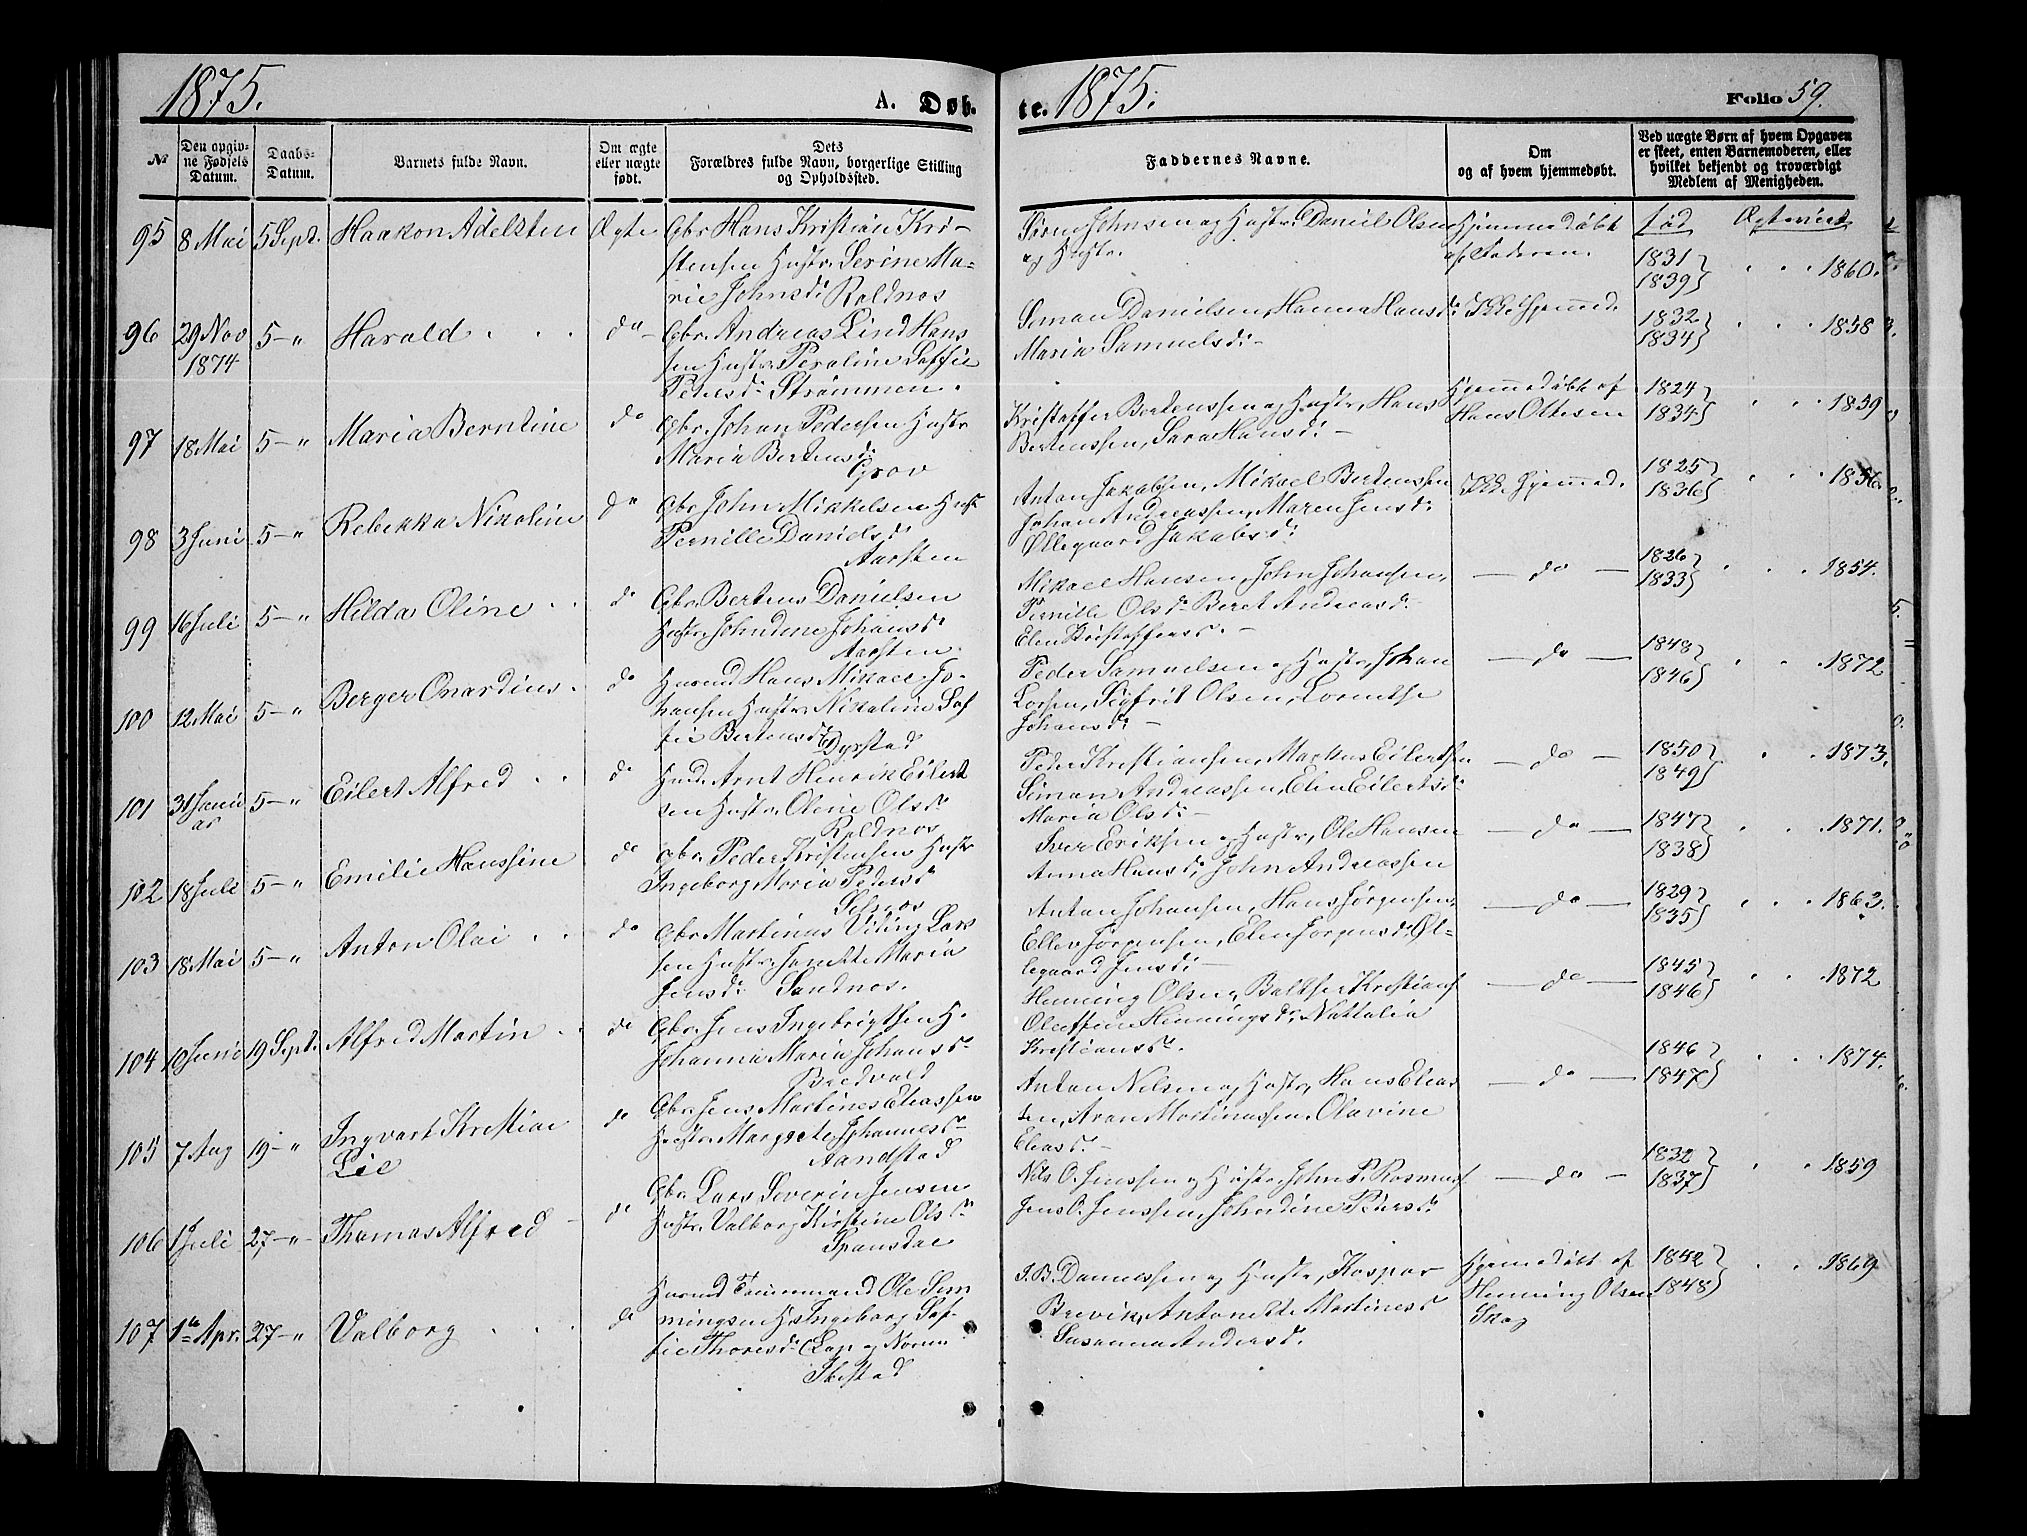 1875.
A. Døb-
te. 1875.
Folio 59.
№
Den opgiv-
ne Fødsels
Datum.
Daabs-
Datum.
Barnets fulde Navn.
Om ægte
eller uægte
født.
Dets
Forældres fulde Navn, borgerlige Stilling
og Opholdssted.
Faddernes Navne.
Om
og af hvem hjemmedøbt.
Ved uægte Børn af hvem Opgaven
er skeet, enten Barnemoderen, eller
hvilket bekjendt og troværdigt
Medlem af Menigheden.
95 8 Mai 5 Sept. Haakon Adelsten Ægte Gbr. Hans Kristian Kri-
stensen Hustr. Serine Ma-
rie Johnsd. Roldnos
Sørn Johnsen og Hustr. Daniel Olsen
og Hustr.
Hjemmedøbt
af Faderen.
fød Ægteviede
1831
1839 1860.
96 29 Nov
1874 5 - " Harald do Gbr. Andreas Lind Hans
sen Hustr. Peroline Soffie
Pedersd. Strømmen.
Simon Danielsen, Hanna Hansd.
Maria Samuelsd. -
Ikke hjemmed.
1832
1834 1858
97 18 Mai 5 - " Maria Berntine do Gbr. Johan Pedersen Hustr
Maria Bertensd.
Grov
Kristoffer Bertenssen og Hustr, Hans
Bertenssen, Sara Hansd. -
Hjemmedøbt af
Hans Ottesen
1824
1834 1859
98 3 Juni 5 - " Rebekka Nikoline do Gbr. John Mikkelsen Hust
Pernille Danielsd.
Aarsten
Anton Jakobsen, Mikael Bertenssen
Johan Andreassen, Maren Jensd.
Ollegaard Jakobsd.
Ikke hjemmed.
1825
1836 1856.
99 16 Juli 5 - " Hilda Oline do Gbr. Bertens Danielsen
Hustr. Johndine Johansd.
Aarsten.
Mikael Hansen, John Johansen,
Pernille Olsd. Beret Andreasd.
Elen Kristoffersd. -
- do -
1826
1833 1854.
100 12 Mai 5 - " Berger Onardius do Husmd Hans Mikael Jo-
hansen Hustr. Nikoline Sof
fie Bertensd. Dyrstad
Peder Samuelsen og Hustr, Johan
Larsen, Sigfrit Olsen, Lorentse
Johansd. -
- do -
1848
1846 1872
101 31 Janu
ar 5 - " Eilert Alfred do Husmd. Arnt Henrik Eilert
sen Hustr. Oline Olsd.
Roldnos
Peder Kristiansen, Markus Eilertsen
Simon Andreassen, Elen Eilertsd.
Maria Olsd. -
- do -
1850
1849 1873.
102 18 Juli 5 - " Emilie Hanssine do Gbr. Peder Kristensen Hustr
Ingeborg Maria Pedersd.
Selnos
Iver Eriksen og Hustr, Ole Hansen
Anna Hansd, John Andreassen
- do -
1847
1838 1871.
103 18 Mai 5 - " Anton Olai do Gbr. Martinus Viling Lars
sen Hustr. Janette Maria
Jensd. Sandnos.
Anton Johansen, Hans Jørgensen,
Eller Jørgensen, Elen Jørgensd. Øl-
legaard Jensd. -
- do -
1829
1835 1863.
104 10 Juni 19 Sept. Alfred Martin do Gbr. Jens Ingebrigtsen H.
Johanna Maria Johansd.
Bredvold
Henning Olsen, Balthser Kristians
Oleffine Henningsd. Nattalia
Kristiansd.
- do -
1845
1846 1872
105 7 Aug 19 - " Ingvart Kristian
Lie do Gbr. Jens Martines Eliassen
Hustr. Margrete Johannesd.
Aandstad
Anton Nilsen og Hustr, Hans Elias
sen, Aron Martinussen, Olavine
Eliasd. -
- do -
1846
1847 1874.
106 1 Juli 27 - " Thomas Alfred do Gbr. Lars Severin Jensen
Hustr. Valborg Kirstine Olsd.
Spansdal
Nils O. Jenssen og Hustr. John P. Rasmus
Jens O. Jenssen, Johndine Pedersd.
- do -
1832
1837 1859
107 1te Apr. 27 - " Valborg do Husmd Tømmermand Ole Sem
mingsen H. Ingeborg Sof-
fie Thoresd. Lap og Norm
Ibestad
I. B. Danielssen og Hustr, Kaspar
Brevik, Antonette Martinesd.
Susanna Andersd.
Hjemmedøbt af
Henning Olsen
Skog
1842
1848 1869